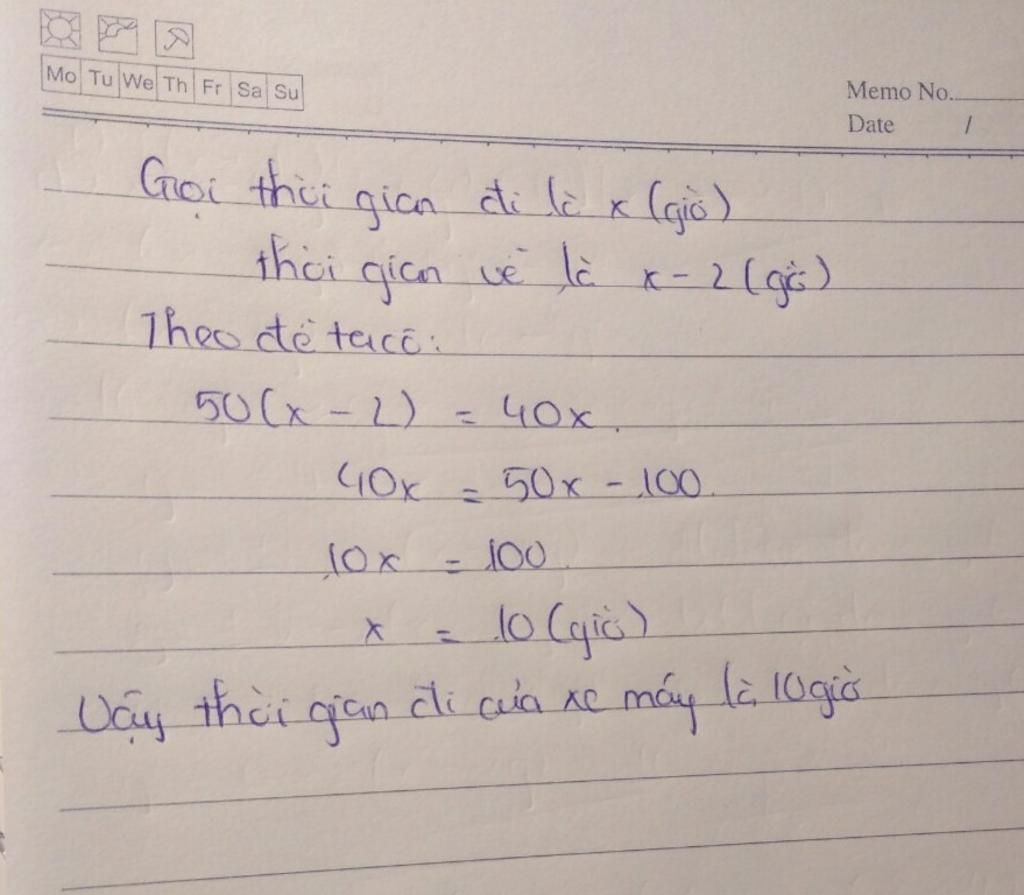 Mo Tu We Th Fr Sa Su
Memo No.
Date /
Gọi thời gian đi là x (giờ)
thời gian về là x - 2 (giờ)
Theo đề ta có:
50(x - 2) = 40x.
40x = 50x - 100.
10x = 100.
x = 10 (giờ)
Vậy thời gian đi của xe máy là 10 giờ